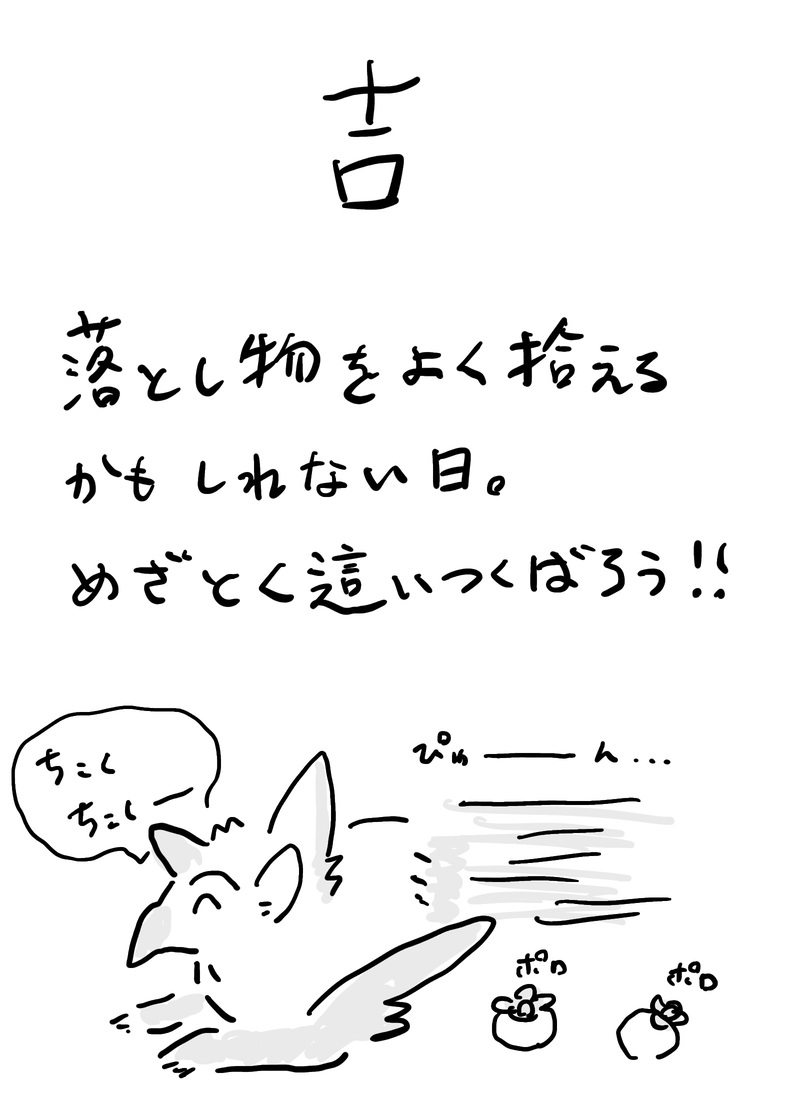 吉
落とし物をよく拾える
かもしれない日。
めざとく這いつくばろう!!
ちこく
ちこくー
ぴゅーん...
ポロ
ポロ